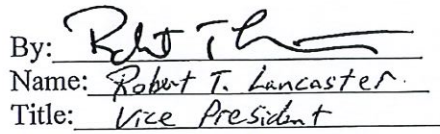 By:
Name: Robert T. Lancaster.
Title: Vice President